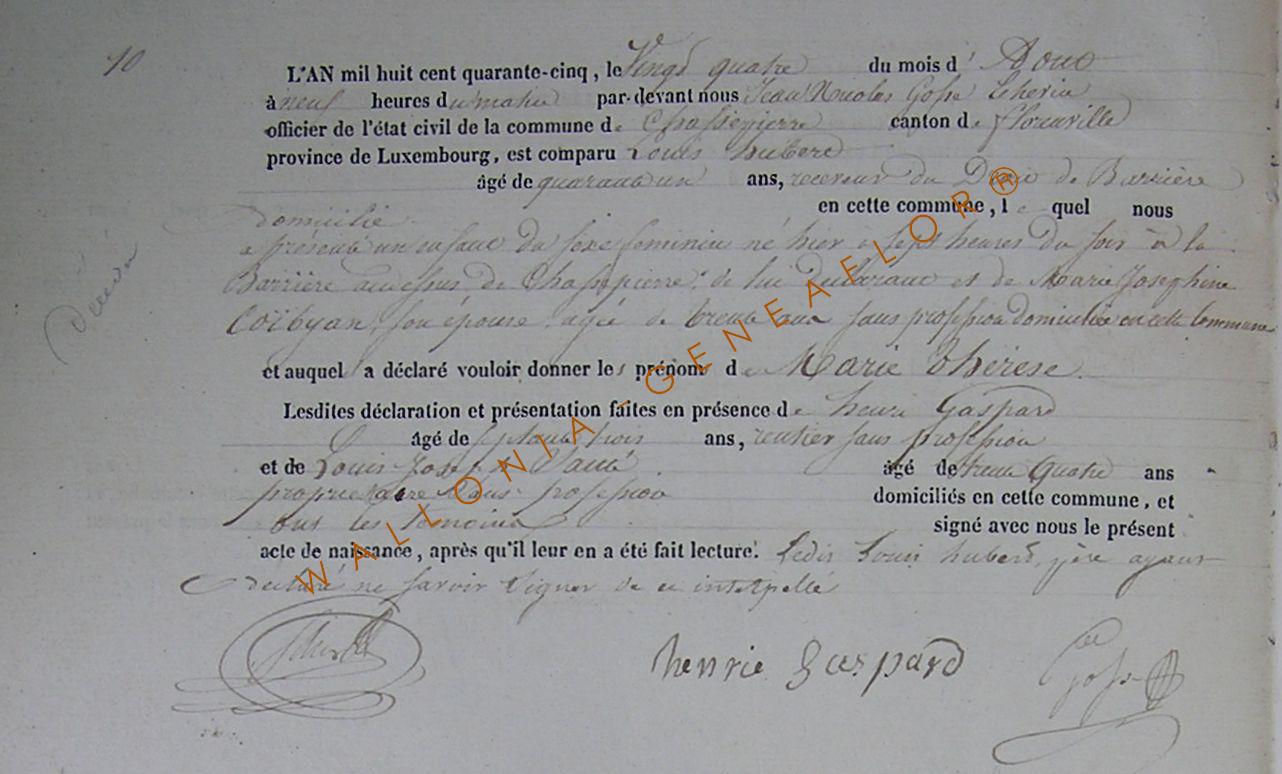 10
L'AN mil huit cent quarante-cinq, le Vingt quatre du mois d' Aout
à neuf heures du matin par-devant nous Jean Nicolas Gofse Echevin
officier de l'état civil de la commune de Chassepierre canton de florenville
province de Luxembourg, est comparu Louis hubert
âgé de quarante un ans, receveur du Droit de Barrière
domicilié en cette commune, le quel nous
a présenté un enfant du sexe feminin né hier à sept heures du soir à la
Barrière audessus de Chassepierre de lui déclarant et de Marie Josephine
son épouse agée de trente ans sans profession domiciliée en cette Commune
et auquel il a déclaré vouloir donner les prénoms de Marie thérèse
Lesdites déclaration et présentation faites en présence de henri Gaspard
âgé de septante trois ans, rentier sans profession
et de Louis Joseph âgé de trente quatre ans
propriétaire sans profession domiciliés en cette commune, et
ont les temoins signé avec nous le présent
acte de naissance, après qu'il leur en a été fait lecture. Ledit Louis hubert, père ayant
déclaré ne savoir signer de ce interpellé
henrie Gaspard
Gofse
WALLONIA - GENEAFLOR®